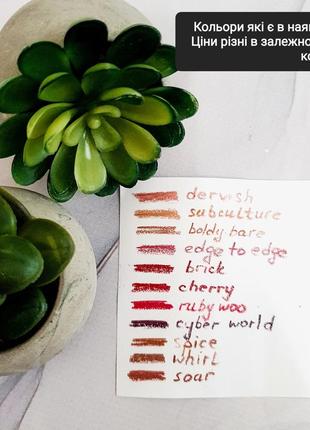 Кольори які є в ная
Ціни різні в залежно
ко
dervish
subculture
boldy bare
edge to edge
brick
cherry
ruby woo
cyber world
spice
whirl
soar